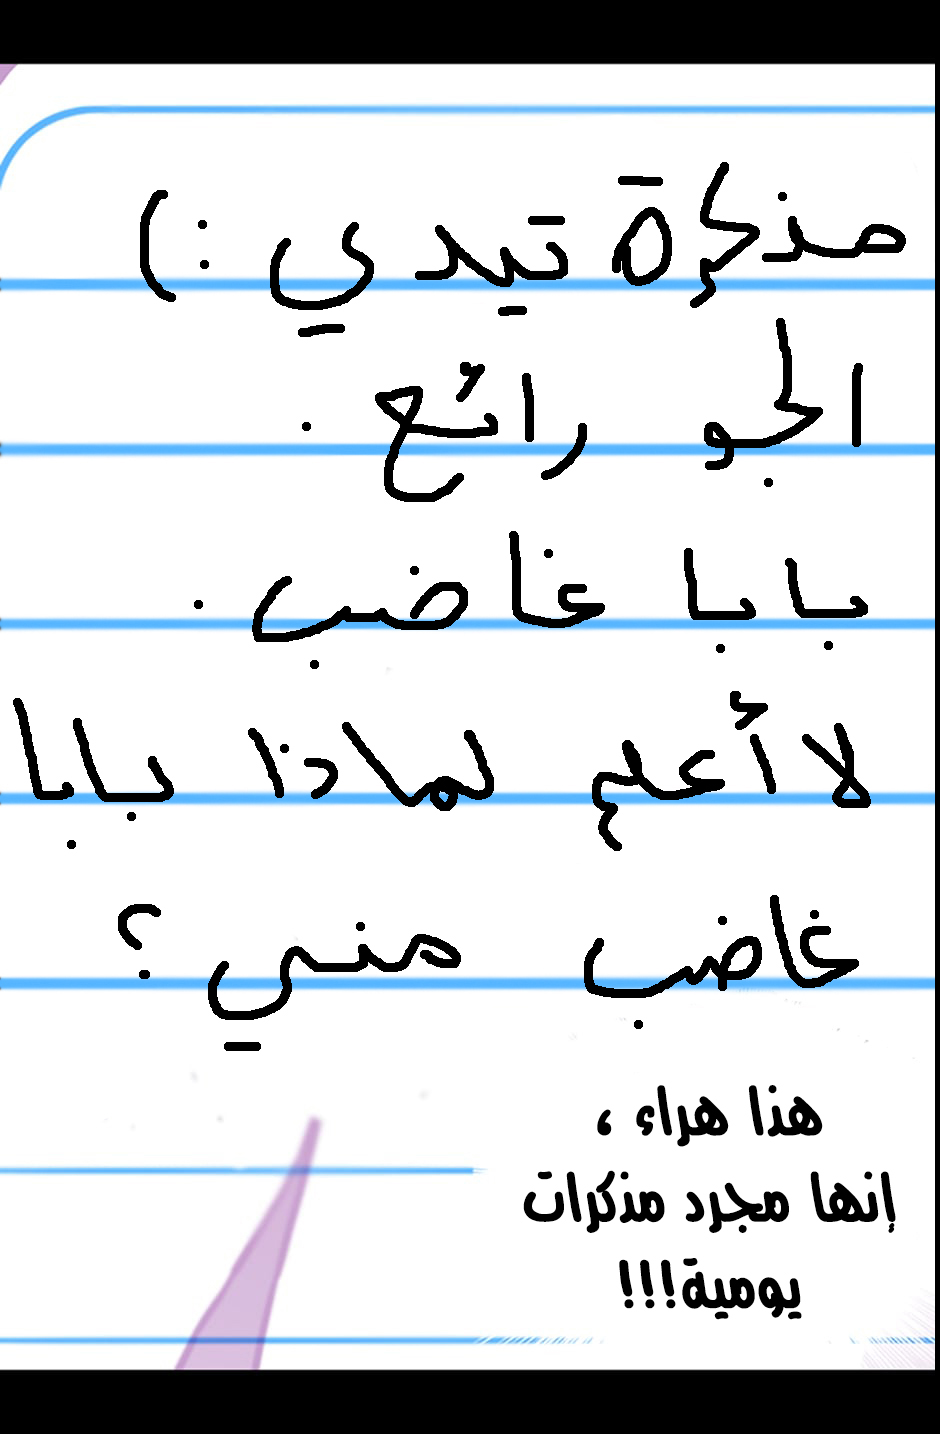 مذكرة تيدي :)
الجو رائع .
بابا غاضب .
لا أعلم لماذا بابا
غاضب مني ؟
هذا هراء ،
إنها مجرد مذكرات
يومية!!!